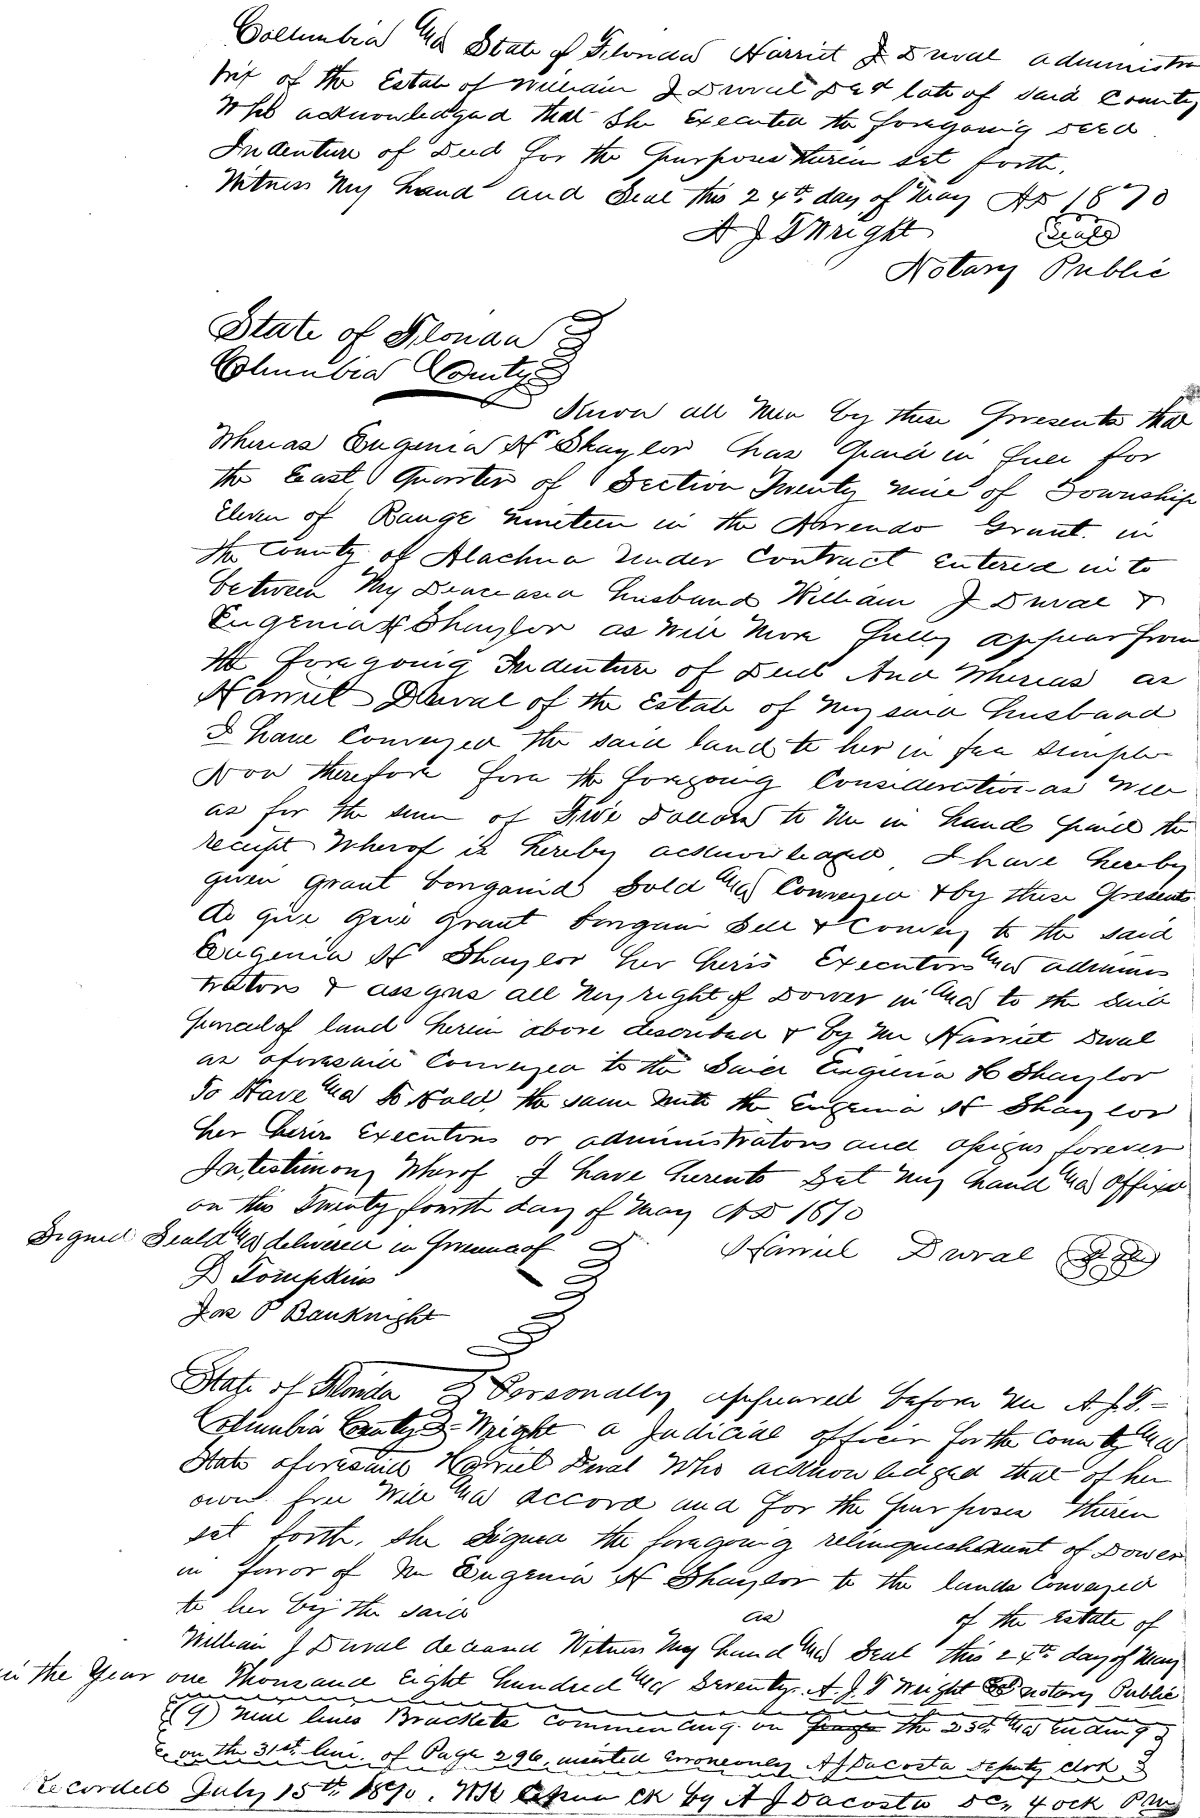 Collumbia and State of Florida Harriet J Duval administra
trix of the Estate of William J Duval Decd late of said County
Who acknowledged that She Executed the foregoing deed
Indenture of Deed for the purposes therein set forth.
Witness my hand and Seal this 24th day of May AD 1870
A J T Wright Seal
Notary Public
State of Florida
Columbia County
Know all Men by these Presents that
Whereas Eugenia H Shaylor has paid in full for
the East Quarter of Section Twenty nine of Township
Eleven of Range nineteen in the Arrendo Grant in
the County of Alachua under Contract entered in to
between My Deceased husband William J Duval &
Eugenia H Shaylor as will more fully appear from
the foregoing Indenture of Deed And Whereas as
Harriet Duval of the Estate of my said husband
I have Conveyed the said land to her in fee simple
Now therefore for the foregoing Consideration as well
as for the sum of Five Dollars to me in hand paid the
receipt Wherof is hereby acknowledged I have hereby
given grant bargaind Sold and Conveyed & by these presents
do give give grant bargain Sell & Convey to the said
Eugenia H Shaylor her heris Executors and adminis
trators & assgns all my right of Dower in and to the said
parcel of land herein above described & by me Harriet Duval
as aforesaid Conveyed to the Said Eugenia H Shaylor
To Have and To Hold, the same unto the Eugenia H Shaylor
her heris Executors or administrators and assigns forever
In testimony Wherof I have herento Set my hand and affixed
on this Twenty fourth day of May AD 1870
Signed Seald and delivered in Presence of
Harriet Duval
D Tompkins
Jos P Bauknight
State of Florida Personally appeared before me A.J.T.=
Columbia County = Wright a Judicial officer for the County and
State aforesaid Harriet Duval Who acknowledged that of her
own free Will and accord and for the purposes therein
set forth, she Signed the foregoing relinquishment of Dower
in favor of Eugenia H Shaylor to the lands Conveyed
to her by the said as of the Estate of
William J Duval deceased Witness My hand and Seal this 24th day of May
in the Year one Thousand Eight hundred and Seventy. A. J. T Wright notary Public
(9) Nine lines Brackets commencing on page the 23rd and Ending
on the 31st line of Page 296, inserted erroneously A J Dacosta deputy clerk
Recorded July 15th 1870. Clk by A J Dacosta DC, 4 ock PM